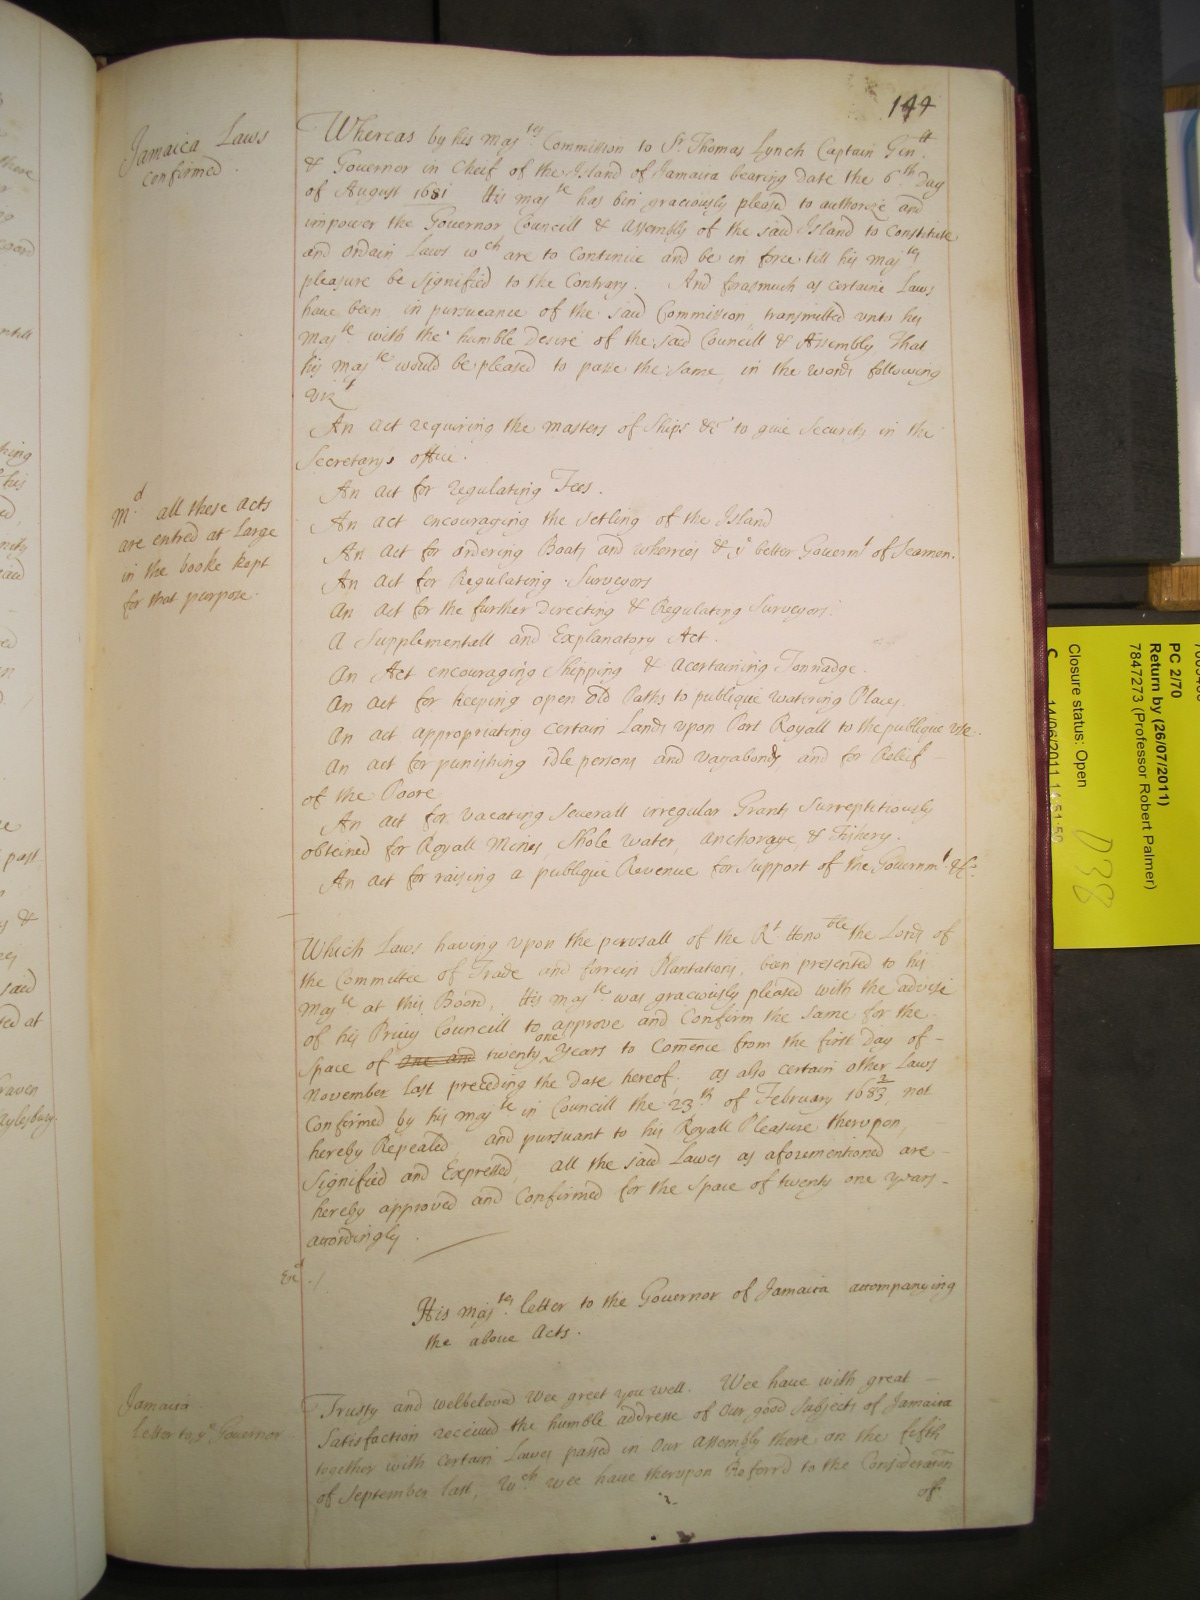 144
Jamaica Laws
confirmed
Whereas by his Maj.ty Commission to Sr. Thomas Lynch Captain Gen.ll
& Governor in Cheif of the Island of Jamaica bearing date the 6.th day
of August 1681 His Maj.tie has bin graciously pleased to authorize and
impower the Governor Councill & Assembly of the said Island to Constitute
and Ordain Laws w.ch are to Continue and be in force till his Maj.tys
pleasure be signified to the Contrary. And forasmuch as certaine Laws
have been in pursueance of the said Commission transmitted unto his
Maj.tie with the humble Desire of the said Councill & Assembly That
his Maj.tie would be pleased to passe the same, in the words following
viz.t
An Act requiring the Masters of Ships &c to give Security in the
Secretarys office.
An Act for regulating Fees.
An Act encouraging the Setling of the Island
M.d all these acts
are entred at Large
in the booke kept
for that purpose.
An Act for ordering Boats and Wherries & ye better Governm.t of Seamen.
An Act for Regulating Surveyors
An Act for the further Directing & Regulating Surveyors.
A Supplementall and Explanatory Act.
An Act encouraging Shipping & acertaining Tonnadge.
An Act for keeping open old Paths to publique watering Places.
An act appropriating certain Lands upon Port Royall to the publique Use.
An act for punishing idle persons and vagabonds, and for Relief
of the Poore
An Act for vacating severall irregular Grants surreptitiously
obtained for Royall Mines, Shole water, Anchorage & Fishery.
An Act for raising a publique Revenue for support of the Governm.t &c.
Which Laws having upon the perusall of the R.t Hono.ble the Lords of
the Committee of Trade and forrein Plantations, been presented to his
Maj.tie at this Board, His Maj.tie was graciously pleased with the advise
of his Privy Councill to approve and Confirm the same for the
Space of one and twenty one Years to Comence from the first day of
November last preceding the date hereof, as also certain other Laws
Confirmed by his Maj.tie in Councill the 23.th of February 1682/3, not
hereby Repealed, and pursuant to his Royall Pleasure therupon,
Signified and Expressed, all the said Lawes as aforementioned are
hereby approved and Confirmed for the space of twenty one years
accordingly.
En.d
His Maj.tys letter to the Governor of Jamaica accompanying
the above Acts.
Jamaica
letter to ye Governor
Trusty and welbeloved Wee greet you well. Wee have with great
Satisfaction received the humble addresse of Our good Subjects of Jamaica
together with certain Lawes passed in Our Assembly there on the fifth
of September last, W.ch wee have therupon Referrd to the Consideration
of
PC 2/70
Return by (26/07/2011)
7847273 (Professor Robert Palmer)
Closure status: Open
14/06/2011 11:51:50
D38